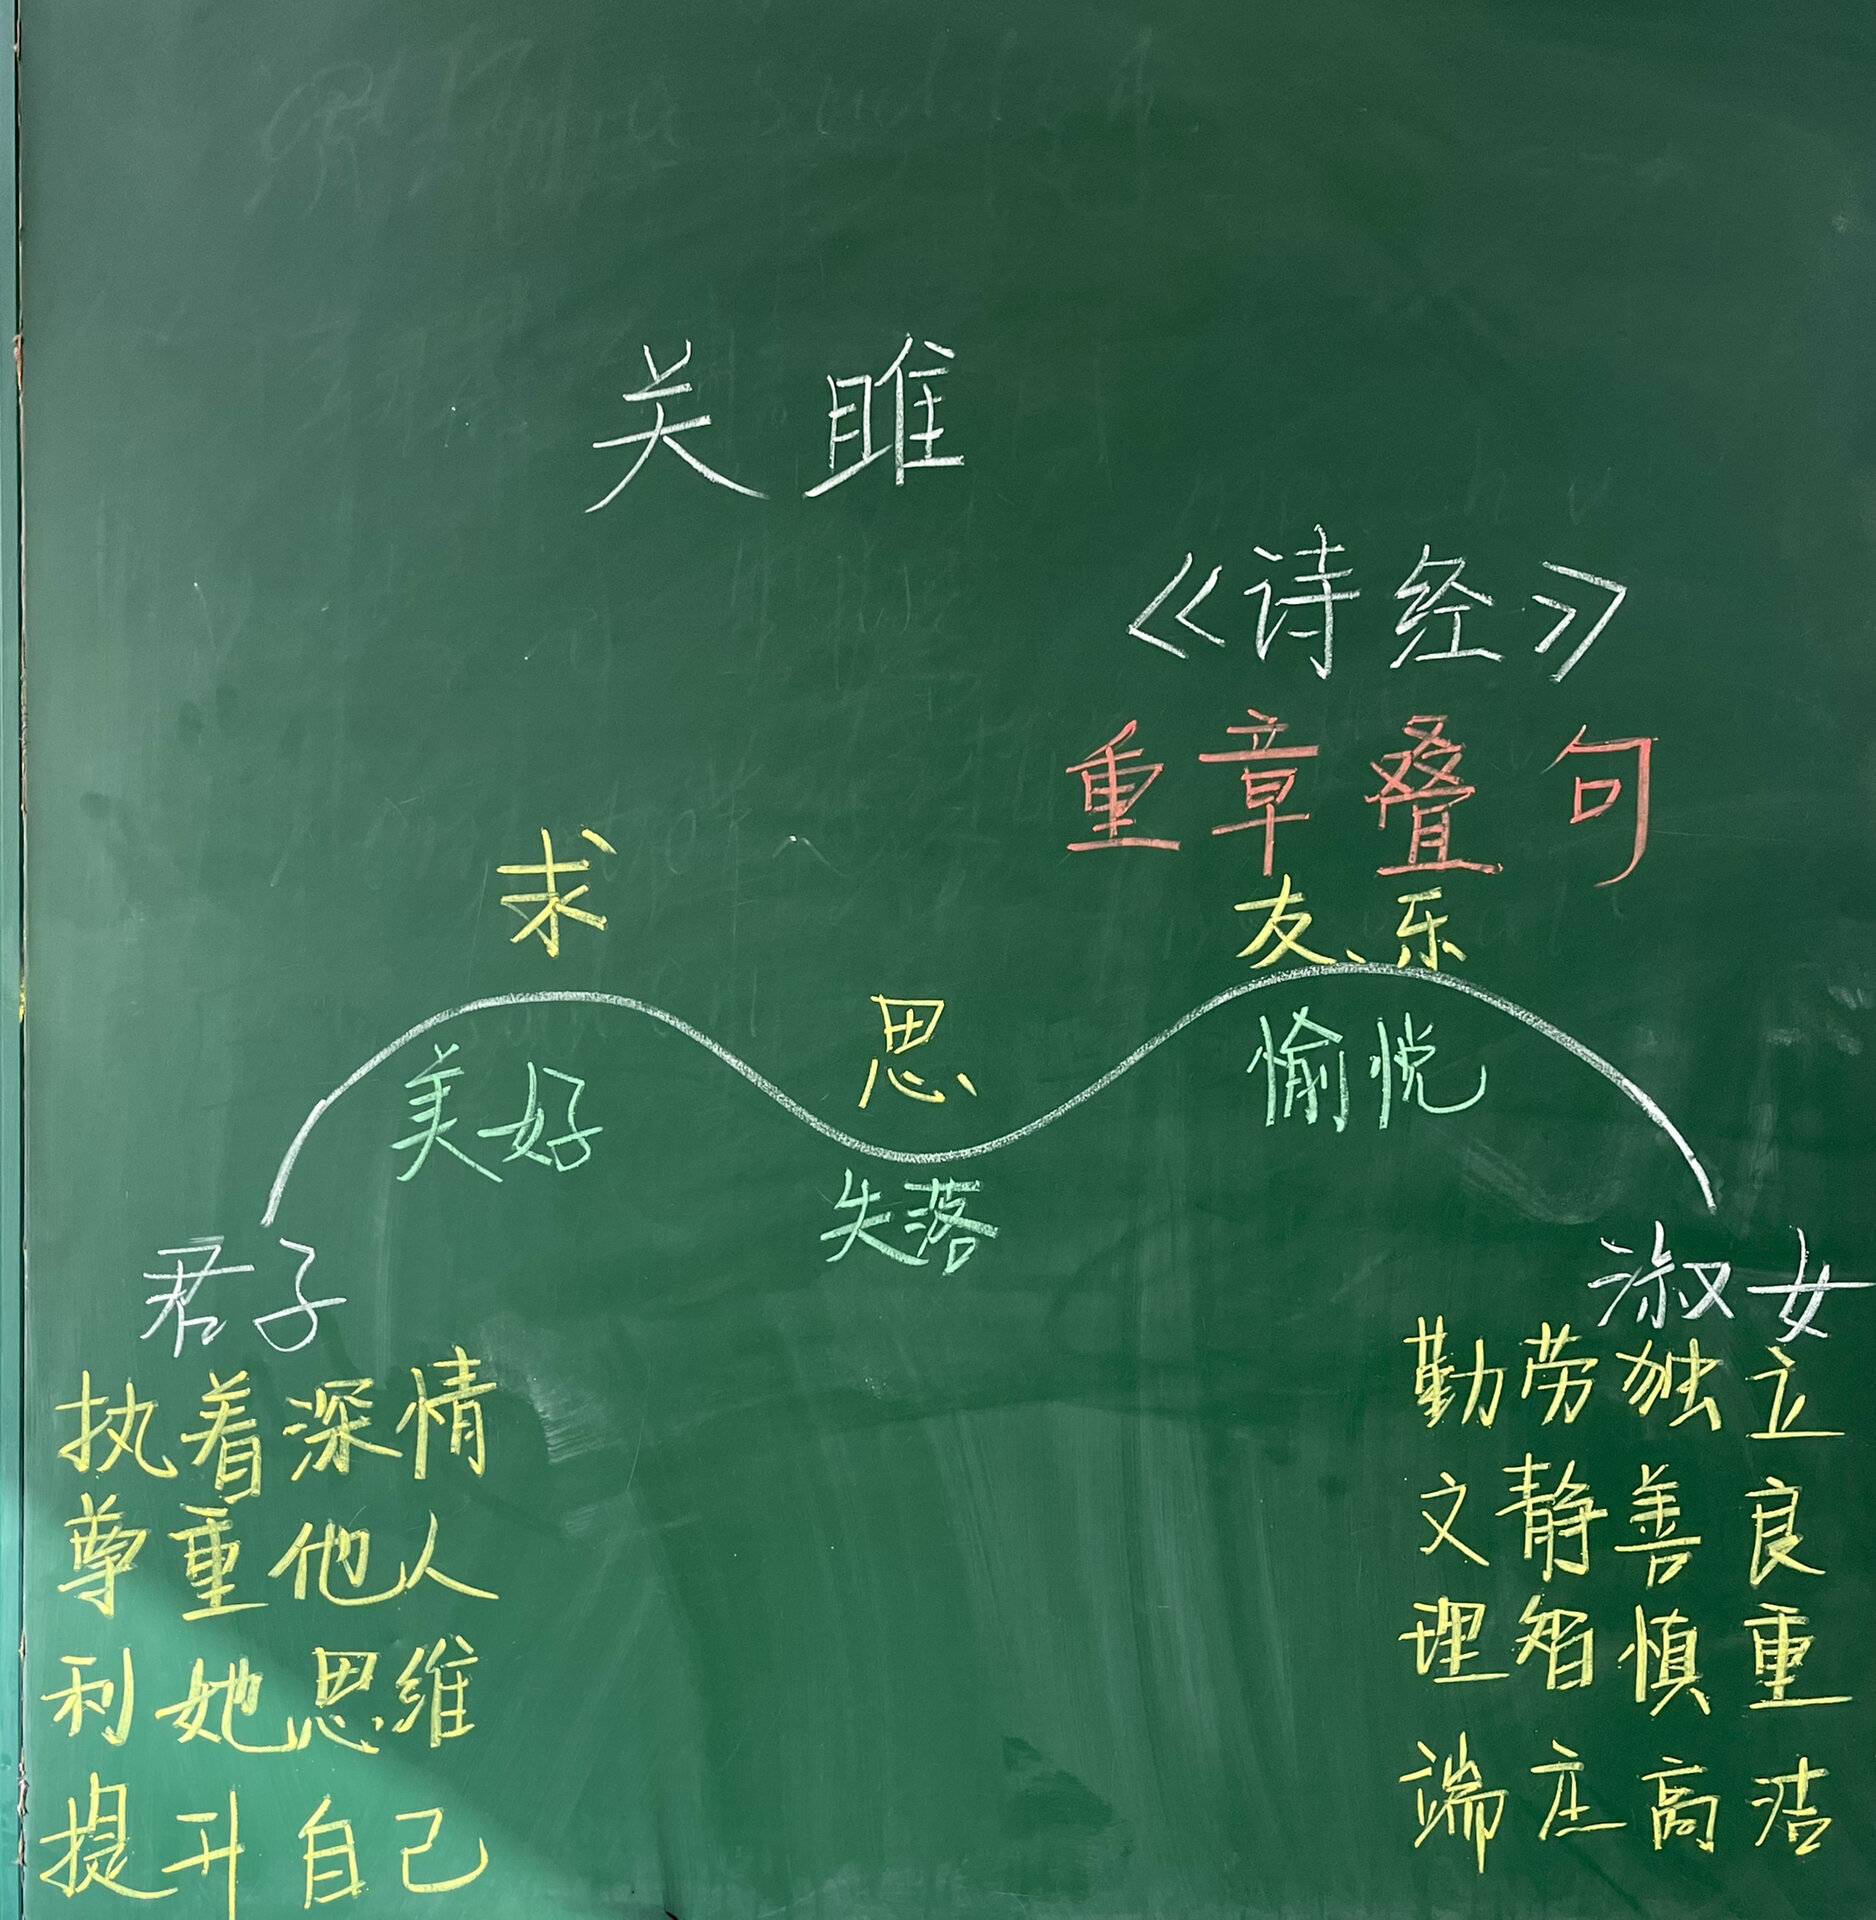 关雎
《诗经》
重章叠句
求
友、乐
思
美好
愉悦
失落
君子
淑女
执着深情
尊重他人
利她思维
提升自己
勤劳独立
文静善良
理智慎重
端庄高洁